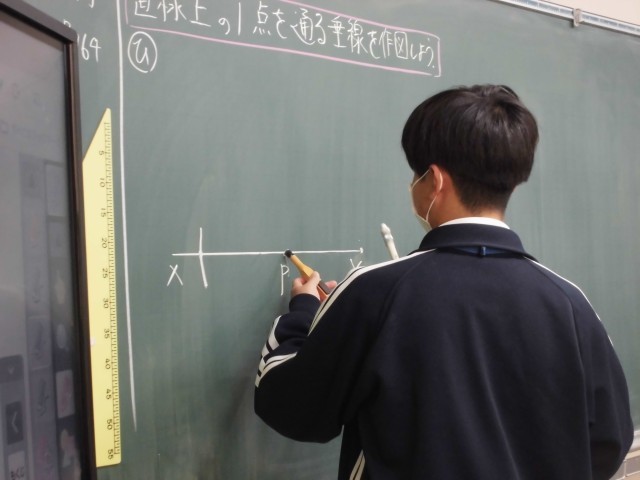 64
直線上の1点を通る垂線を作図しよう。
ひ
X P Y
5 10 15 20 25 30 35 40 45 50 55